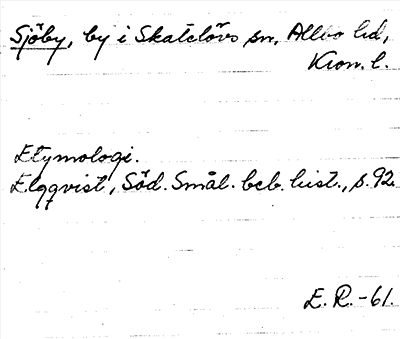 Sjöby, by i Skatelövs sn, Allbo hd,
Kron. l.
Etymologi.
Elqqvist, Söd. Smål. beb. hist., s. 92
E. R. -61.